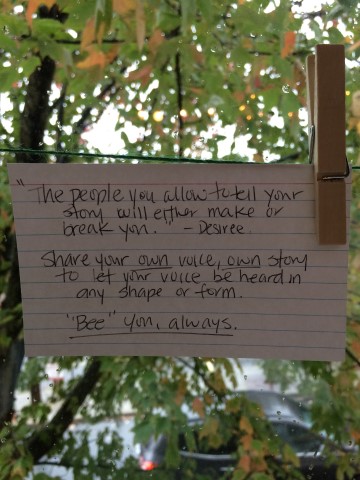 "The people you allow to tell your
story will either make or
break you." - Desiree.
Share your own voice, own story
to let your voice be heard in
any shape or form.
"Bee" you, always.